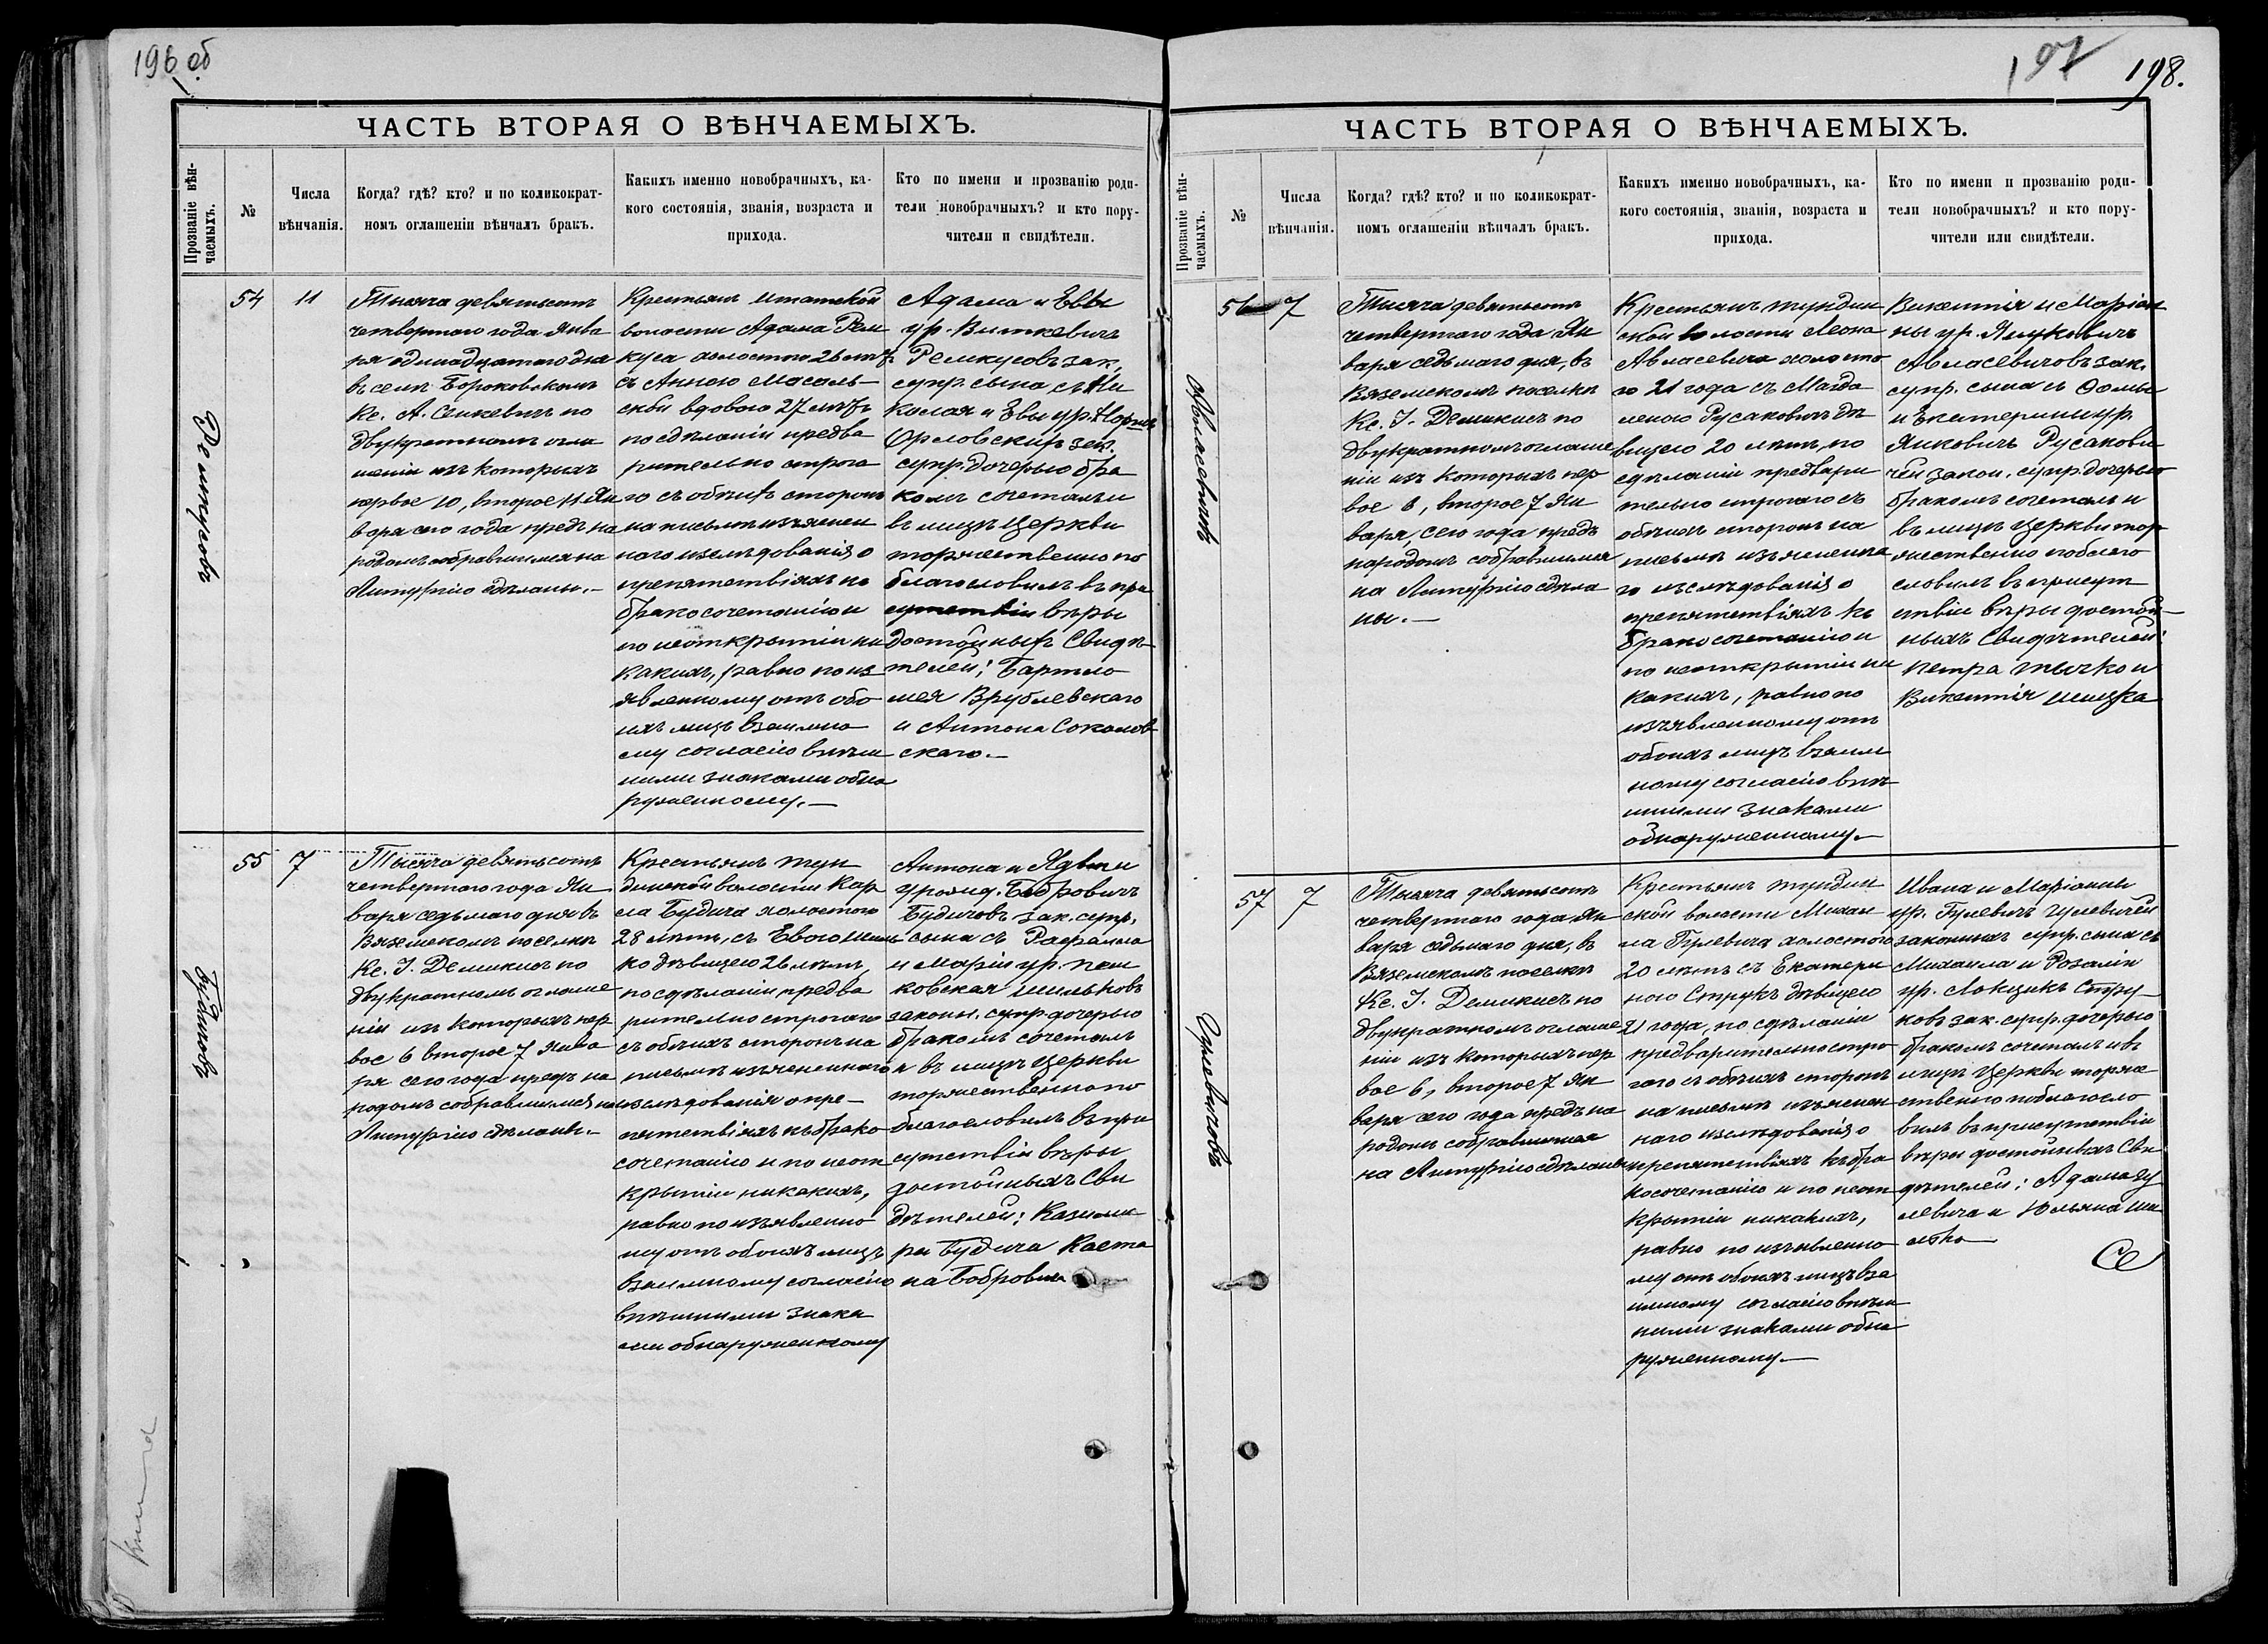 196 об
ЧАСТЬ ВТОРАЯ О ВѢНЧАЕМЫХЪ.
Прозваніе вѣн-
чаемыхъ.
№
Числа
вѣнчанія.
Когда? гдѣ? кто? и по коликократ-
номъ оглашеніи вѣнчалъ бракъ.
Какихъ именно новобрачныхъ, ка-
кого состоянія, званія, возраста и
прихода.
Кто по имени и прозванію роди-
тели новобрачныхъ? и кто пору-
чители и свидѣтели.
Ремкусовъ
54
11
Тысяча девятьсотъ
четвертаго года Янва
ря одинадцатого дня
въ селѣ Бороковскомъ
Кс. А. Сенкевичъ по
двукратномъ огла
шеніи изъ которыхъ
первое 10, второе 11 Ян
варя сего года предъ на
родомъ собравшимся на
Литургію сдѣланы.—
Крестьянъ
волости Адама Рем
куса холостого 26 лѣтъ
съ Анною Масаль—
ской вдовою 27 лѣтъ
по сдѣланіи предва
рительно строга
го съ обѣихъ сторонъ
на письмѣ изъяснен
наго изслѣдованія о
препятствіяхъ къ
бракосочетанію и
по неоткрытіи ни
какихъ, равно по изъ
явленному отъ обо
ихъ лицъ взаимно
му согласію внѣш
ними знаками обна
руженному.—
Адама и Евы
ур. Виткевичъ
Ремкусовъ зак.
супр. сына съ Ни
колая и Евы ур.
Орловскихъ зак.
супр. дочерью бра
комъ сочеталъ и
въ лицѣ Церкви
торжественно по
благословилъ въ при
сутствіи вѣры
достойныхъ Свидѣ
телей: Бартло
мея Врублевскаго
и Антона Соколов
скаго.—
Будичовъ
55
7
Тысяча девятьсотъ
четвертаго года Ян
варя седьмаго дня въ
Вяземскомъ поселкѣ
Кс. І. Демикисъ по
двукратномъ оглаше
ніи изъ которыхъ пер
вое 6 второе 7 Янва
ря сего года предъ на
родомъ собравшимся на
Литургію сдѣланы.—
Крестьянъ тун
динской волости Кар
ла Будича холостого
28 лѣтъ, съ Евою Шиль
ко дѣвицею 26 лѣтъ,
по сдѣланіи предва
рительно строгаго
съ обѣихъ сторонъ на
письмѣ изъясненнаго
изслѣдованія о пре—
пятствіяхъ къ брако
сочетанію и по неот
крытіи никакихъ,
равно по изъявленно
му отъ обоихъ лицъ
взаимному согласію
внѣшними знака
ми обнаруженному
Антона и Ядвиги
урожд. Бобровичъ
Будичовъ зак. супр.
сына съ Рафаила
и Маріи ур. Паш
ковская Шильковъ
законн. супр. дочерью
бракомъ сочеталъ
и въ лицѣ Церкви
торжественно по
благословилъ въ при
сутствіи вѣры
достойныхъ Сви
дѣтелей: Казими
ра Будича Каета
на Бобровича
197 198.
ЧАСТЬ ВТОРАЯ О ВѢНЧАЕМЫХЪ.
Прозваніе вѣн-
чаемыхъ.
№
Числа
вѣнчанія.
Когда? гдѣ? кто? и по коликократ-
номъ оглашеніи вѣнчалъ бракъ.
Какихъ именно новобрачныхъ, ка-
кого состоянія, званія, возраста и
прихода.
Кто по имени и прозванію роди-
тели новобрачныхъ? и кто пору-
чители или свидѣтели.
Авласевичовъ
56
7
Тысяча девятьсотъ
четвертаго года Ян
варя седьмаго дня, въ
Вяземскомъ поселкѣ
Кс. І. Демикисъ по
двукратномъ оглаше
ніи изъ которыхъ пер
вое 6, второе 7 Ян
варя, сего года предъ
народомъ собравшимся
на Литургію сдѣла
ны.—
Крестьянъ тундин
ской волости Леона
Авласевича холосто
го 21 года съ Магда
леною Русаковичъ дѣ
вицею 20 лѣтъ, по
сдѣланіи предвари
тельно строгаго съ
обѣихъ сторонъ на
письмѣ изъясненна
го изслѣдованія о
препятствіяхъ къ
бракосочетанію и
по неоткрытіи ни
какихъ, равно по
изъявленному отъ
обоихъ лицъ взаим
ному согласію внѣ
шними знаками
обнаруженному.—
Викентія и Маріан
ны ур. Януковичъ
Авласевичовъ зак.
супр. сына съ Фомы
и Екатерины ур.
Янковичъ Русакови
чей закон. супр. дочерью
бракомъ сочеталъ и
въ лицѣ Церкви тор
жественно поблаго
словилъ въ присут
ствіи вѣры достой—
ныхъ Свидѣтелей:
Петра Тычко и
Викентія
Гулевичовъ
57
7
Тысяча девятьсотъ
четвертаго года Ян
варя седьмаго дня, въ
Вяземскомъ поселкѣ
Кс. І. Демикисъ по
двукратномъ оглаше
ніи изъ которыхъ пер
вое 6, второе 7 Ян
варя сего года предъ на
родомъ собравшимся
на Литургію сдѣланы
Крестьянъ тундин
ской волости Михаи
ла Гулевича холостого
20 лѣтъ съ Екатери
ною Струкъ дѣвицею
21 года, по сдѣланіи
предварительно стро
гаго съ обѣихъ сторонъ
на письмѣ изъяснен
наго изслѣдованія о
препятствіяхъ къ бра
косочетанію и по неот
крытіи никакихъ,
равно по изъявленно
му отъ обоихъ лицъ вза
имному согласію внѣш
ними знаками обна
руженному.—
Ивана и Маріанны
ур. Гулевичъ Гулевичей
законныхъ супр. сына съ
Михаила и Розаліи
ур. Локцикъ Стру—
ковъ зак. супр. дочерью
бракомъ сочеталъ и въ
лицѣ Церкви торже
ственно поблагосло
вилъ въ присутствіи
вѣры достойныхъ Сви
дѣтелей: Адама Гу
левича и Юльяна Ши
лько